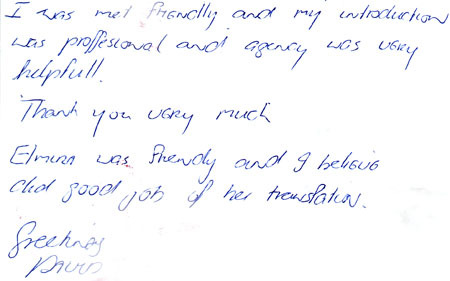 I was met friendly and my introduction
was proffesional and agency was very
helpfull.
Thank you very much
Elmira was friendy and I believe
did good job of her translation.
Greetings